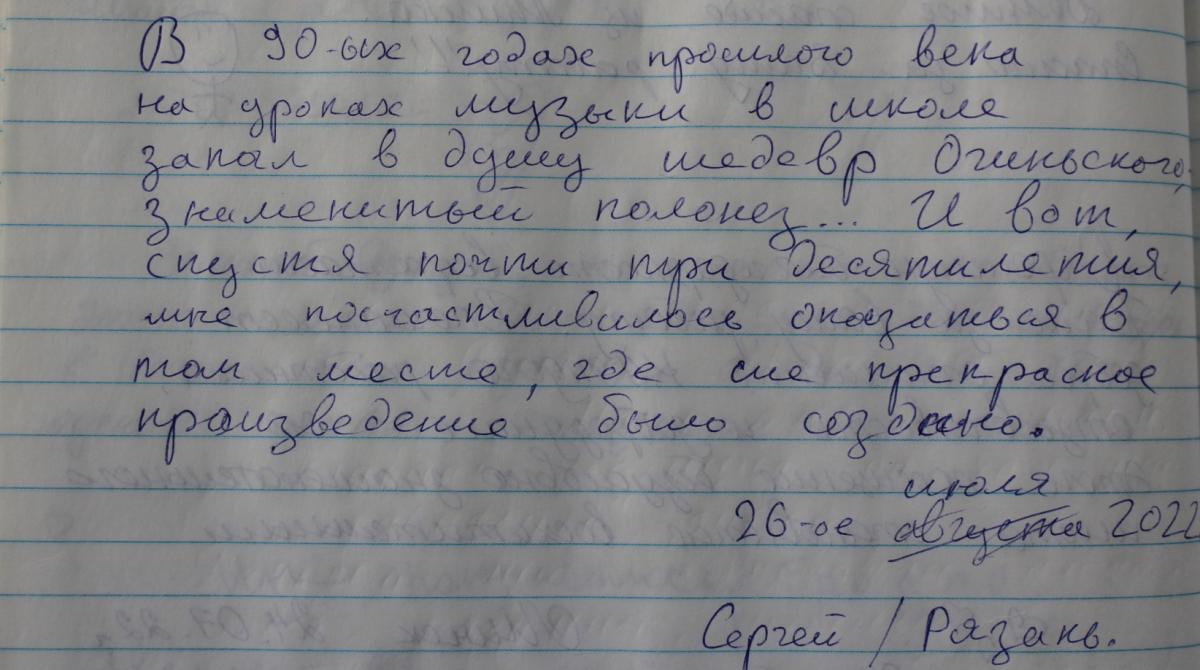 В 90-ых годах прошлого века
на уроках музыки в школе
запал в душу шедевр Огиньского,
знаменитый полонез... И вот,
спустя почти три десятилетия,
мне посчастливилось оказаться в
том месте, где сие прекрасное
произведение было создано.
июля
26-ое августа 2022
Сергей / Рязань.